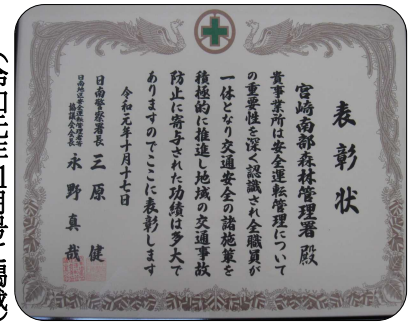 表彰状
宮崎南部森林管理署 殿
貴事業所は安全運転管理について
の重要性を深く認識され全職員が
一体となり交通安全の諸施策を
積極的に推進し地域の交通事故
防止に寄与された功績は多大で
ありますのでここに表彰します
令和元年十月十七日
日南警察署長 三原 健
日南地区安全運転管理者等
協議会会長 永野真哉
(令和元年11月号に掲載)